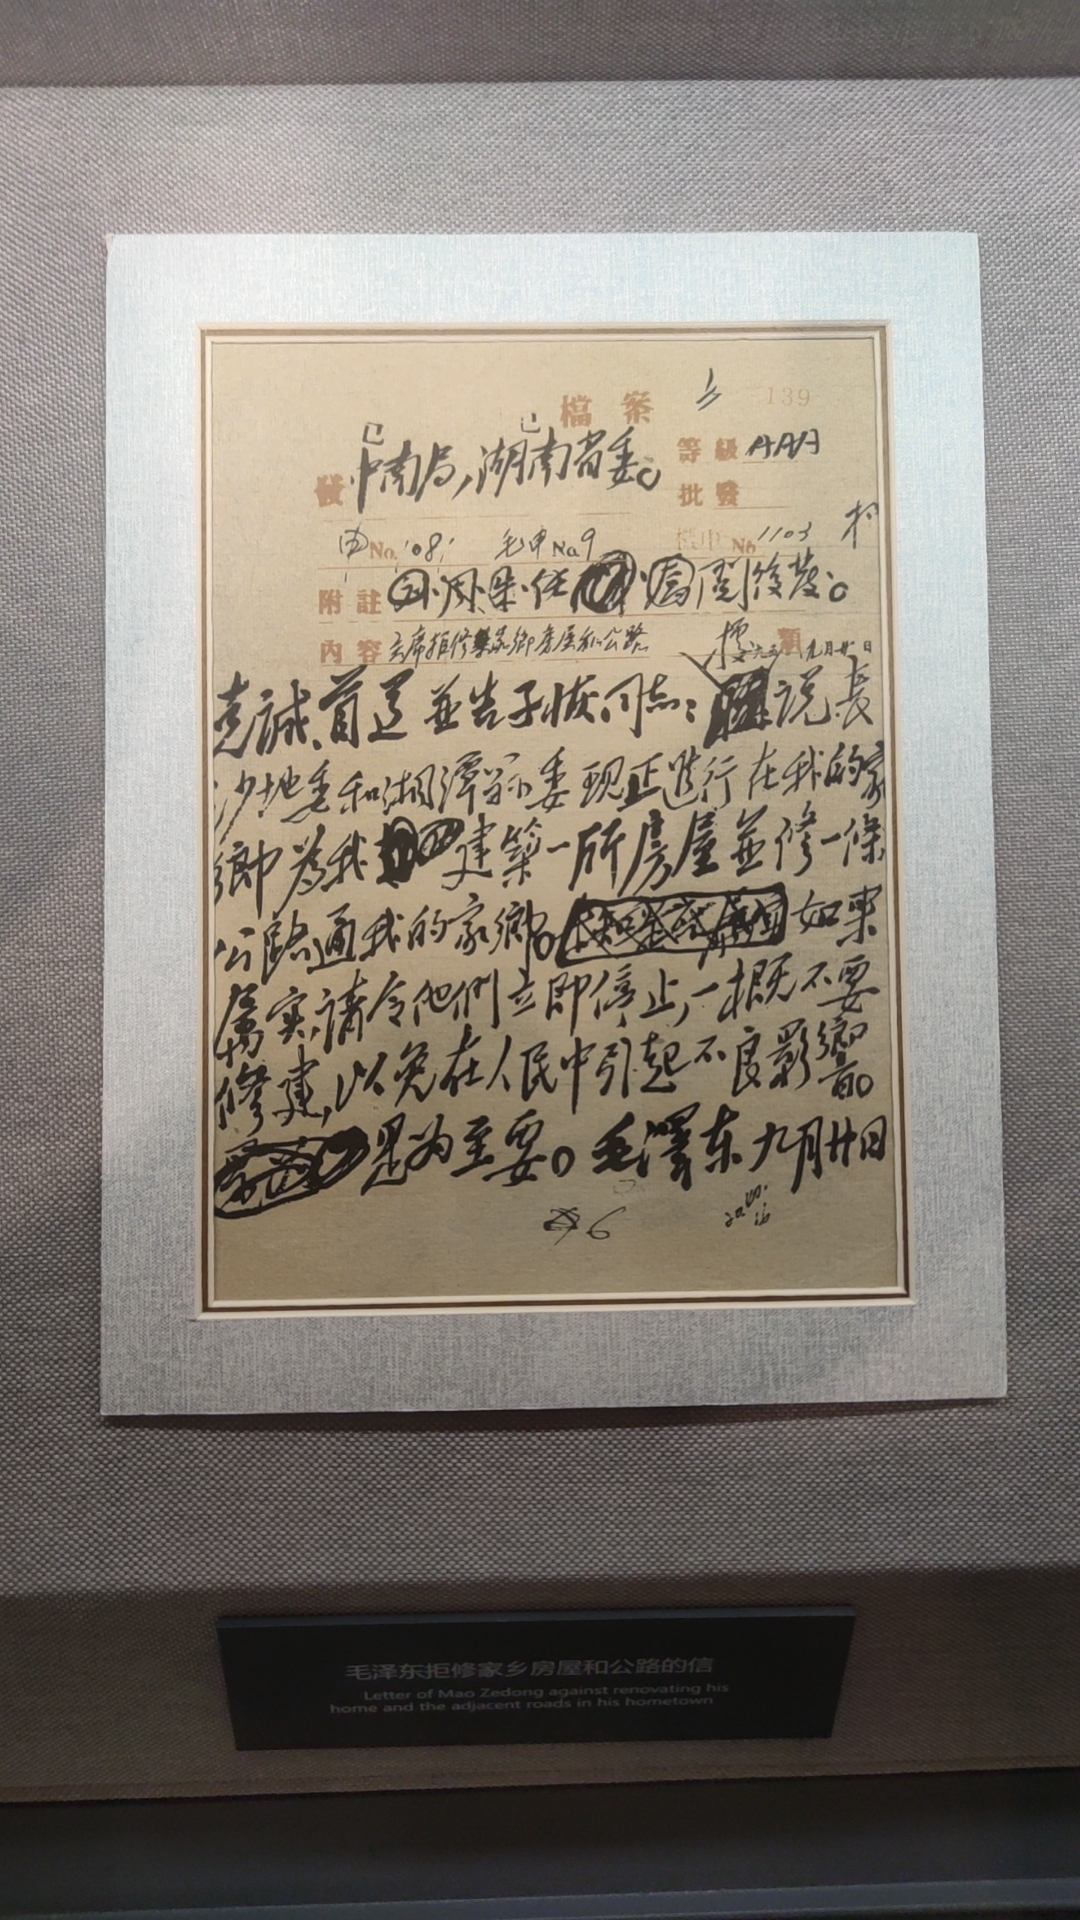 檔案 139
發 中南局,湖南省委。 等級 AAA
批發
No. 081 毛申 No 9 No 1103
附註 刘、周、朱、任 阅後发。
内容 主席拒修家鄉房屋和公路 九月廿日
克誠、首道並告子恢同志:據说長
沙地委和湘潭縣委现正進行在我的家
鄉为我建築一所房屋並修一條
公路通我的家鄉。如果
属实,請令他們立即停止,一概不要
修建,以免在人民中引起不良影響。
是为至要。毛澤东 九月廿日
6
毛泽东拒修家乡房屋和公路的信
Letter of Mao Zedong against renovating his
home and the adjacent roads in his hometown